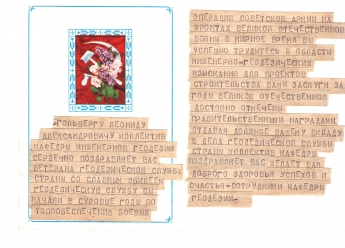 ГОЛЬБЕРГУ ЛЕОНИДУ
АЛЕКСАНДРОВИЧУ КОЛЛЕКТИВ
КАФЕДРЫ ИНЖЕНЕРНОЙ ГЕОДЕЗИИ
СЕРДЕЧНО ПОЗДРАВЛЯЕТ ВАС
ВЕТЕРАНА ГЕОДЕЗИЧЕСКОЙ СЛУЖБЫ
СТРАНЫ СО СЛАВНЫМ ЮБИЛЕЕМ
ГЕОДЕЗИЧЕСКУЮ СЛУЖБУ ВЫ
НАЧАЛИ В СУРОВЫЕ ГОДЫ ПО
ТОПООБЕСПЕЧЕНИЮ БОЕВЫХ
ОПЕРАЦИЯ СОВЕТСКОЙ АРМИИ НА
ФРОНТАХ ВЕЛИКОЙ ОТЕЧЕСТВЕННОЙ
ВОЙНЫ В МИРНОЕ ВРЕМЯ ВЫ
УСПЕШНО ТРУДИТЕСЬ В ОБЛАСТИ
ИНЖЕНЕРНО-ГЕОДЕЗИЧЕСКИХ
ИЗЫСКАНИЯ ДЛЯ ПРОЕКТОВ
СТРОИТЕЛЬСТВА ВАШИ ЗАСЛУГИ ЗА
ГОДЫ ВЕЛИКОЙ ОТЕЧЕСТВЕННОЙ
ДОСТОЙНО ОТМЕЧЕНЫ
ПРАВИТЕЛЬСТВЕННЫМИ НАГРАДАМИ
ОТДАВАЯ ДОЛЖНОЕ ВАШЕМУ ВКЛАДУ
В ДЕЛА ГЕОДЕЗИЧЕСКОЙ СЛУЖБЫ
СТРАНЫ КОЛЛЕКТИВ КАФЕДРЫ
ПОЗДРАВЛЯЕТ ВАС ЖЕЛАЕТ ВАМ
ДОБРОГО ЗДОРОВЬЯ УСПЕХОВ И
СЧАСТЬЯ-СОТРУДНИКИ КАФЕДРЫ
ГЕОДЕЗИИ-